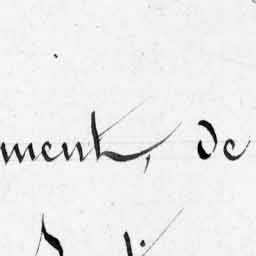 ment, de